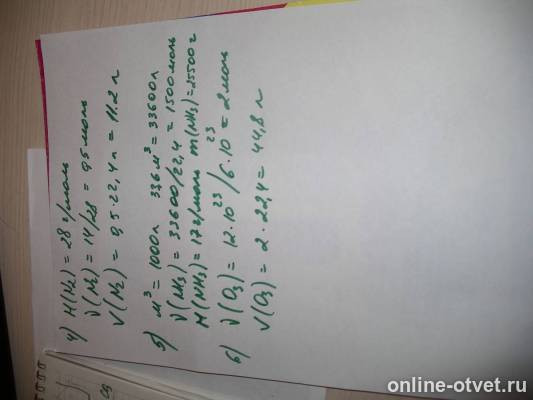 4) M(N₂) = 28 г/моль
ν(N₂) = 14/28 = 0,5 моль
V(N₂) = 0,5·22,4л = 11.2 л
5) м³ = 1000л 33,6 м³ = 33600л
ν(NH₃) = 33600/22,4 = 1500 моль
M(NH₃) = 17 г/моль m(NH₃) = 25500 г
6) ν(O₃) = 12·10²³/6·10²³ = 2 моль
V(O₃) = 2·22,4 = 44,8 л
online-otvet.ru